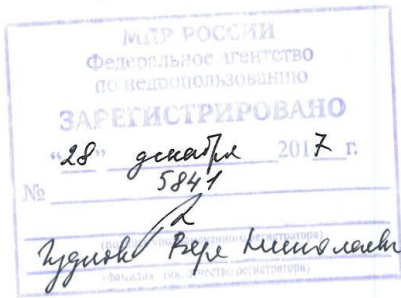 МПР РОССИИ
Федеральное агентство
по недропользованию
ЗАРЕГИСТРИРОВАНО
“28” декабря 2017 г.
№ 5841
(подпись уполномоченного регистратора)
Вера Николаевна
(фамилия, имя, отчество регистратора)